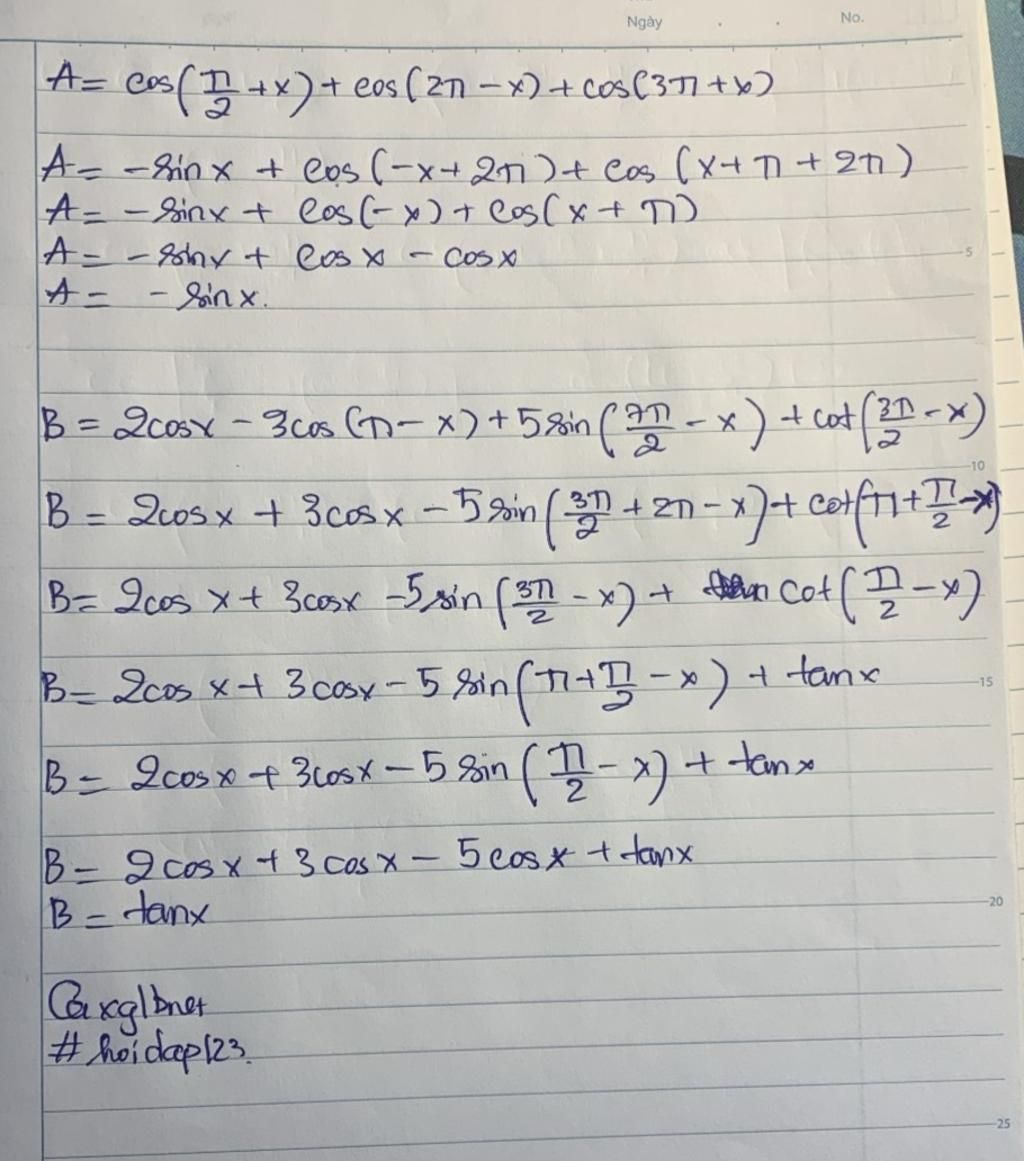 Ngày . . No.
A = cos(π/2 + x) + cos(2π - x) + cos(3π + x)
A = - sin x + cos (-x + 2π) + cos (x + π + 2π)
A = - sinx + cos(-x) + cos(x + π)
A = - sinx + cosx - cosx
A = - sinx.
5
B = 2cosx - 3cos (π - x) + 5sin (7π/2 - x) + cot(3π/2 - x)
10
B = 2cosx + 3cosx - 5 sin (3π/2 + 2π - x) + cot(π + π/2 - x)
B = 2cos x + 3cosx - 5 sin (3π/2 - x) + cot (π/2 - x)
B = 2cos x + 3cosx - 5 sin (π + π/2 - x) + tanx
15
B = 2cosx + 3cosx - 5 sin (π/2 - x) + tanx
B = 2cosx + 3cosx - 5cosx + tanx
B = tanx
20
# hoidap123.
25